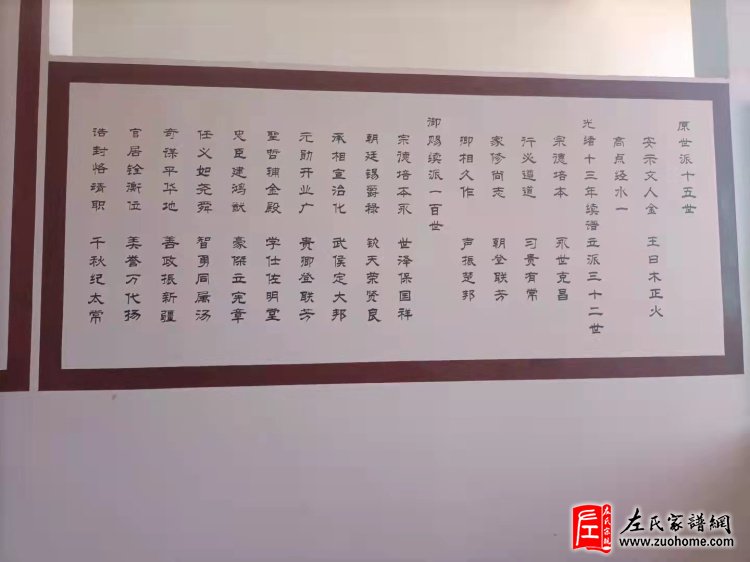 原世派十五世
安示文人金 王日木正火
高点经水一
光绪十三年续谱立派三十二世
宗德培本 永世克昌
行必遵道 习贵有常
家修尚志 朝登联芳
卿相久作 声振楚邦
御赐续派一百世
宗德培本永 世泽保国祥
朝廷锡爵禄 钦天荣贤良
承相宣治化 武侯定大邦
元勋开业广 贵卿登联芳
聖哲辅金殿 学仕佐明堂
忠臣建鸿猷 豪傑立宪章
任义如尧舜 智勇同属汤
奇谋平华地 善政振新疆
官居铨衡位 美誉万代扬
诰封恪靖职 千秋纪太常
左氏家譜網
www.zuohome.com